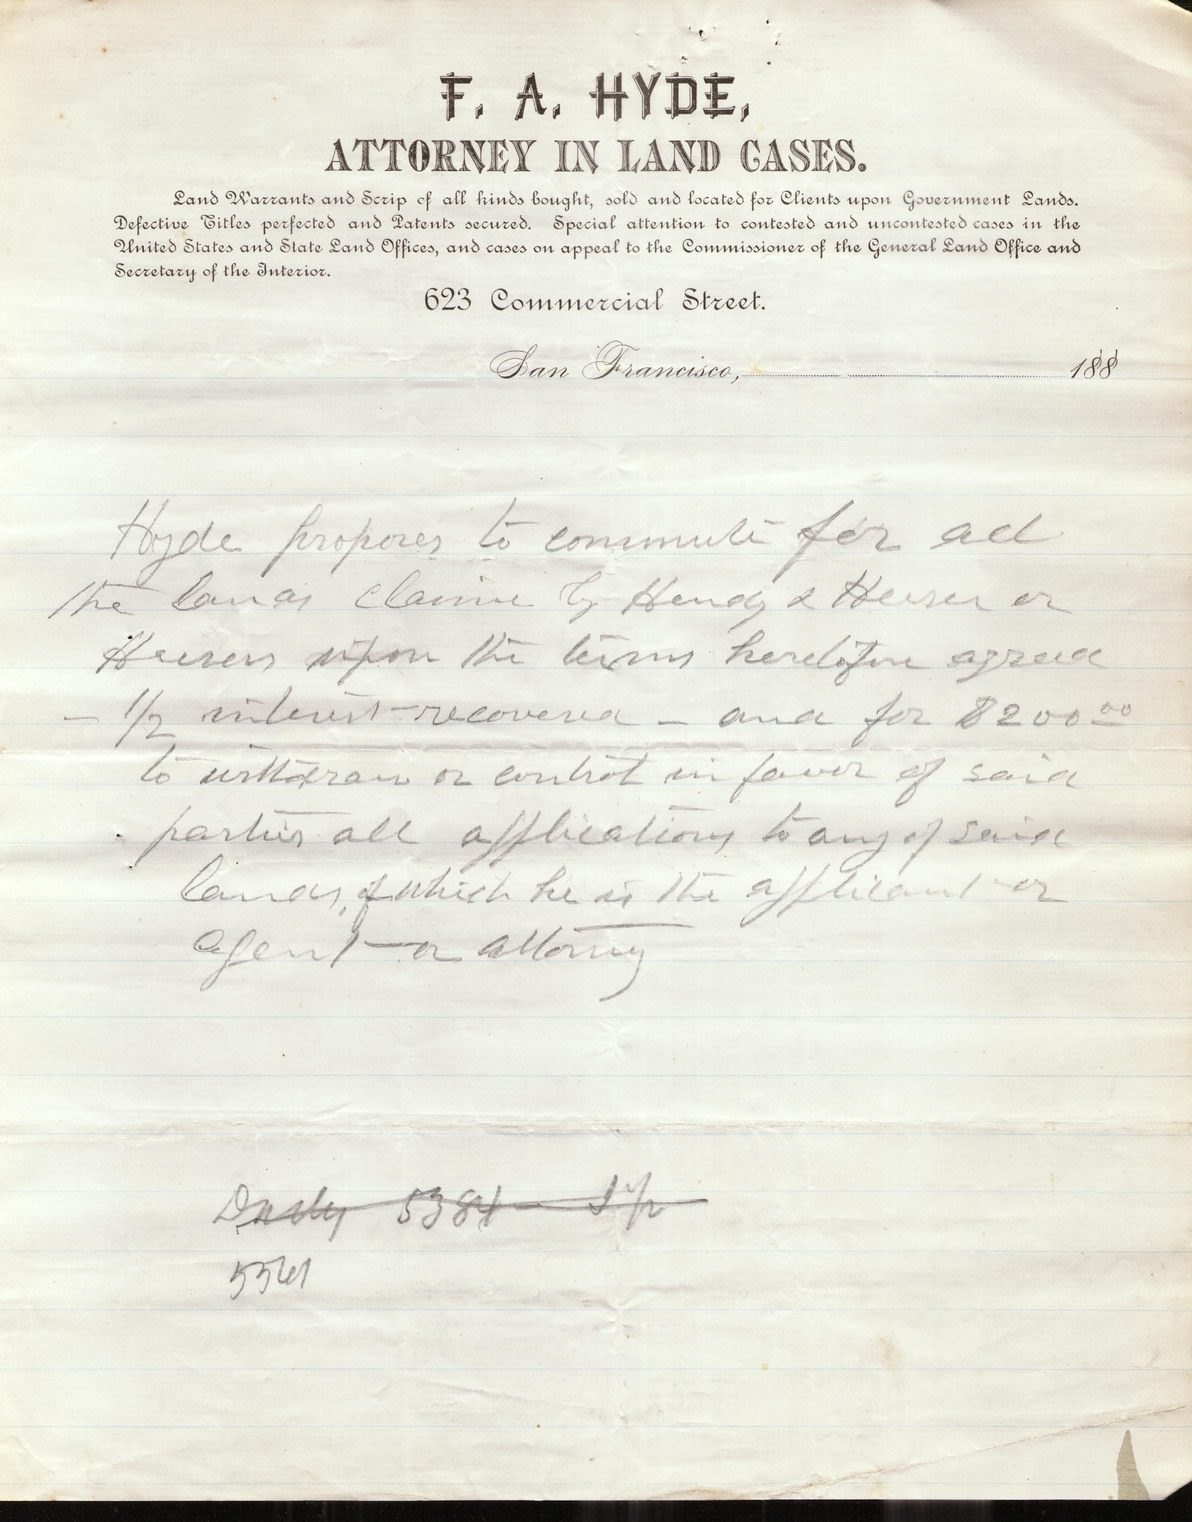 F. A. HYDE,
ATTORNEY IN LAND CASES.
Land Warrants and Scrip of all kinds bought, sold and located for Clients upon Government Lands.
Defective Titles perfected and Patents secured. Special attention to contested and uncontested cases in the
United States and State Land Offices, and cases on appeal to the Commissioner of the General Land Office and
Secretary of the Interior.
623 Commercial Street.
San Francisco, 188
Hyde proposes to commute for all
the lands claim by Hendy & Heeser or
Heesers upon the terms heretofore agreed
- 1/2 interest recovered - and for $200.00
to withdraw or control in favor of said
parties all applications to any of said
lands, of which he is the applicant or
agent or attorney
5384